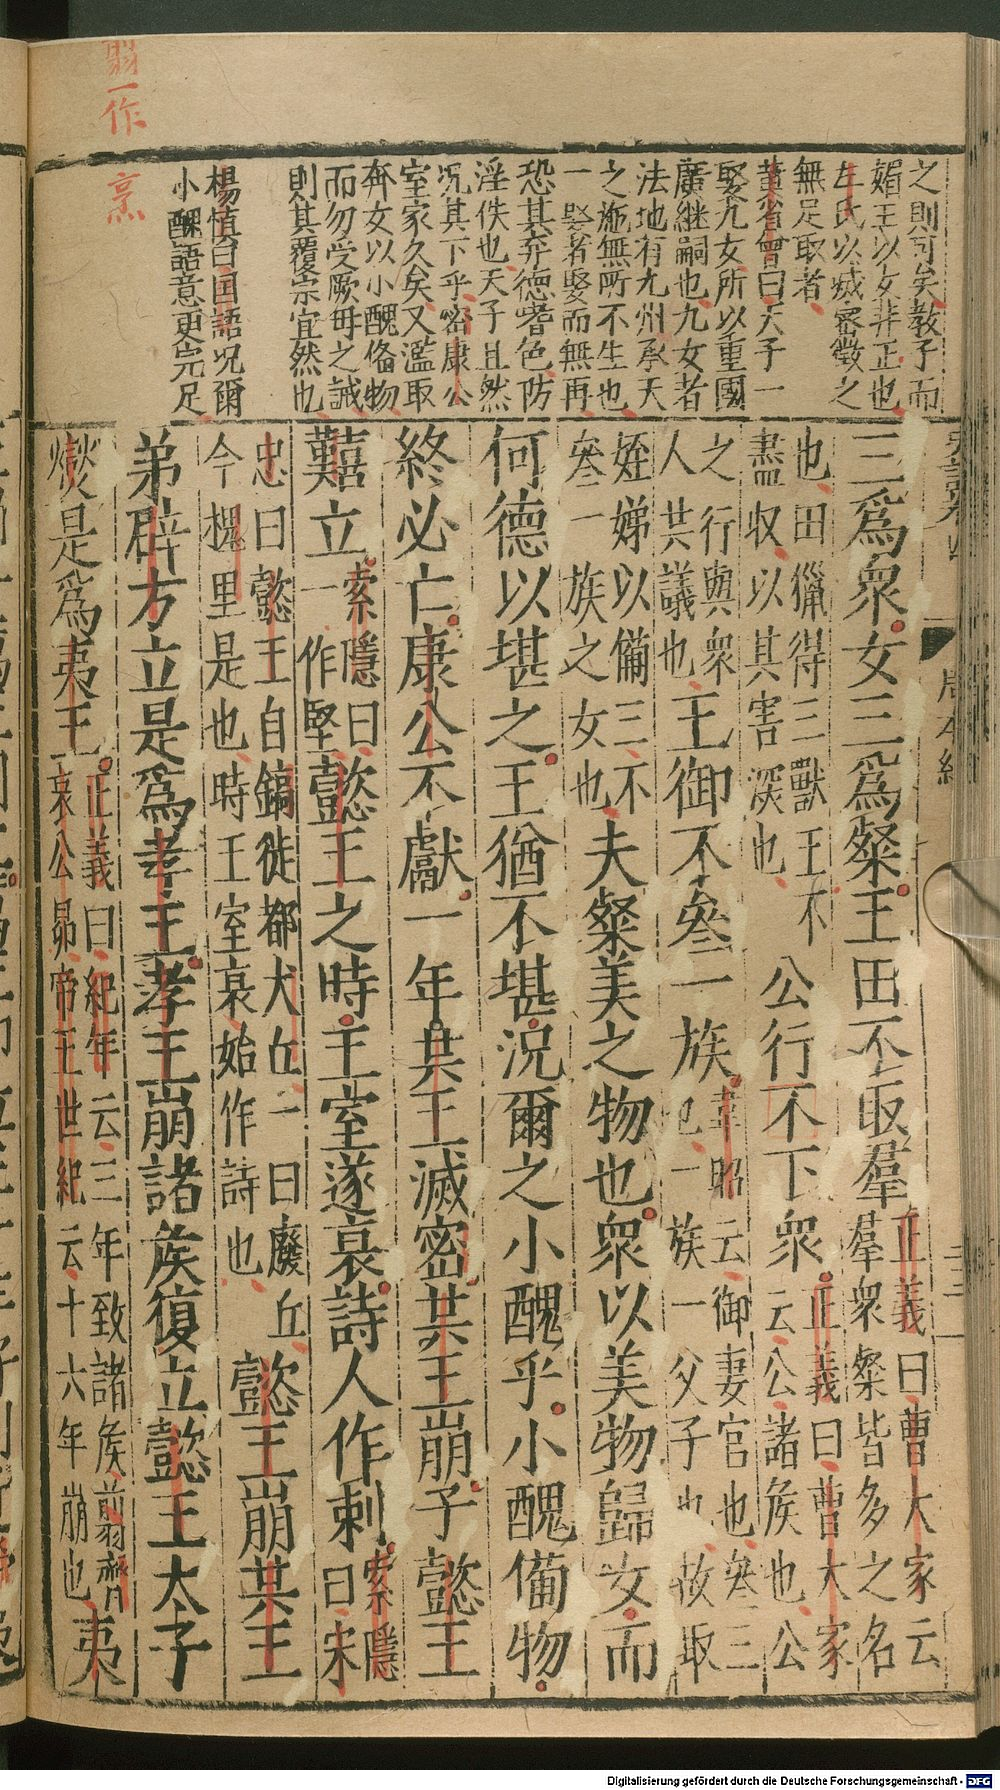 之則可矣教子而
媚王以女非正也
左氏以滅密徵之
無足取者
黃省曾曰天子一
娶九女所以重國
廣繼嗣也九女者
法地有九州承天
之施無所不生也
一娶者娶而無再
恐其弃德耆色防
淫佚也天子且然
况其下乎密康公
室家久矣又濫取
奔女以小醜俻物
而勿受厥母之誡
則其覆宗宜然也
楊慎曰国語况爾
小醜語意更完足
翦一作
烹
周本紀
三爲衆女三爲粲王田不取羣
正義曰曹大家云
羣衆粲皆多之名
也田獵得三獸王不
盡収以其害深也
公行不下衆
正義曰曹大家
云公諸矦也公
之行與衆
人共議也
王御不叄一族
韋昭云御妻官也叄三
也一族一父子也故取
姪娣以備三不
叄一族之女也
夫粲美之物也衆以美物歸女而
何德以堪之王猶不堪況爾之小醜乎小醜備物
終必亡康公不獻一年共王滅密共王崩子懿王
囏立
索隱曰
一作堅
懿王之時王室遂衰詩人作刺
索隱
曰宋
忠曰懿王自鎬徙都犬丘一曰廢丘
今槐里是也時王室衰始作詩也
懿王崩共王
弟辟方立是爲孝王孝王崩諸矦復立懿王太子
燮是爲夷王
正義曰紀年云三年致諸矦翦齊
哀公昴帝王世紀云十六年崩也
夷
Digitalisierung gefördert durch die Deutsche Forschungsgemeinschaft - DFG